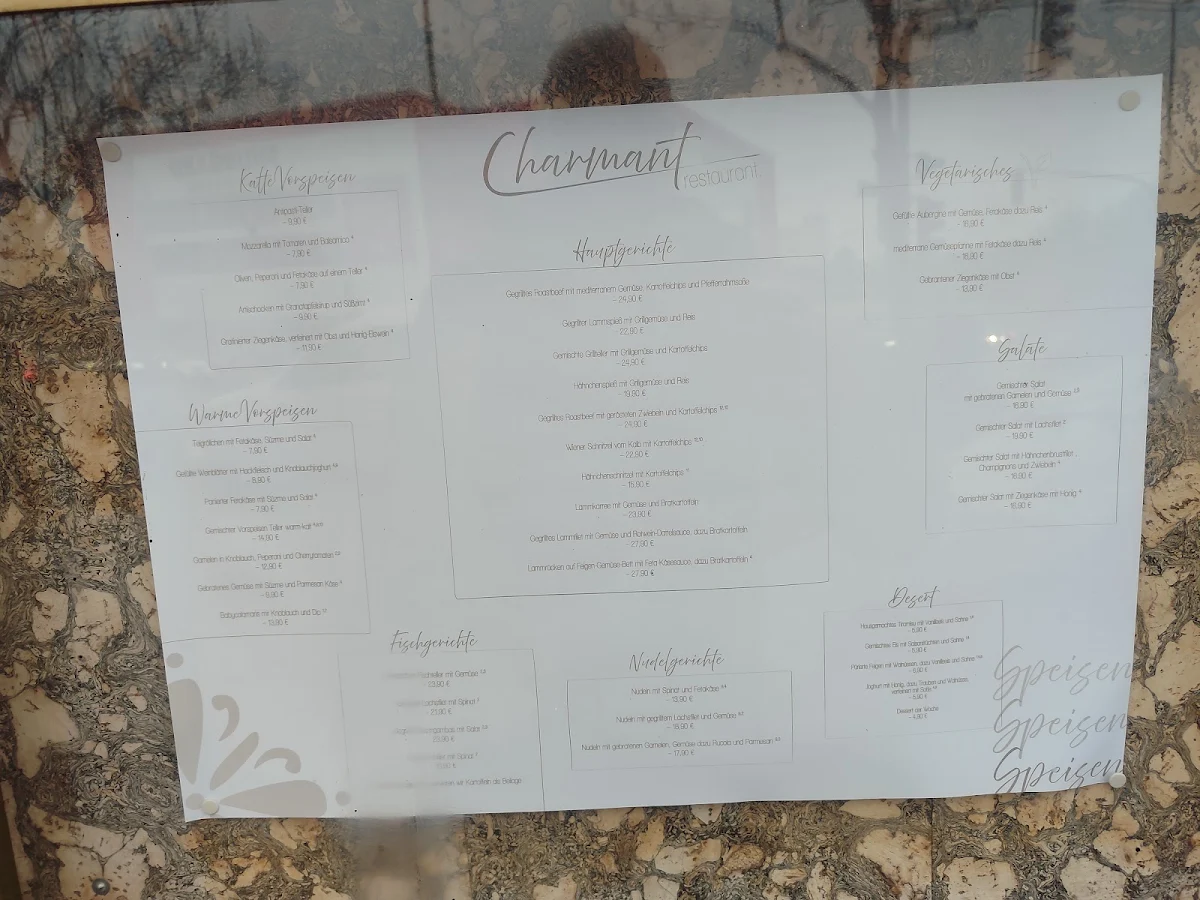 Charmant
restaurant
Kalte Vorspeisen
Antipasti Teller
- 9,90 €
Mozzarella mit Tomaten und Balsamico
- 7,90 €
Oliven, Peperoni und Fetakäse auf einem Teller
- 7,90 €
Artischocken mit Granatapfelsirup und Süßzims
- 9,90 €
Gratinierter Ziegenkäse, verfeinert mit Obst und Honig
- 11,90 €
Warme Vorspeisen
Teigröllchen mit Fetakäse, Süzme und Salat
- 7,90 €
Gefüllte Weinblätter mit Hackfleisch und Knoblauchjoghurt
- 8,90 €
Panierter Fetakäse mit Süzme und Salat
- 7,90 €
Gemischter Vorspeisen Teller warm-kalt
- 14,90 €
Garnelen in Knoblauch, Peperoni und Cherrytomaten
- 12,90 €
Gebratenes Gemüse mit Süzme und Parmesan Käse
- 9,90 €
Babycalamaris mit Knoblauch und Dip
- 13,90 €
Hauptgerichte
Gegrilltes Roastbeef mit mediterranem Gemüse, Kartoffelchips und Pfefferrahmsoße
- 24,90 €
Gegrillter Lammspieß mit Grillgemüse und Reis
- 22,90 €
Gemischte Grillteller mit Grillgemüse und Kartoffelchips
- 24,90 €
Hähnchenspieß mit Grillgemüse und Reis
- 19,90 €
Gegrilltes Roastbeef mit gerösteten Zwiebeln und Kartoffelchips
- 24,90 €
Wiener Schnitzel vom Kalb mit Kartoffelchips
- 22,90 €
Hähnchenschnitzel mit Kartoffelchips
- 15,90 €
Lammkarree mit Gemüse und Bratkartoffeln
- 23,90 €
Gegrilltes Lammfilet mit Gemüse und Rotwein-Dattelsauce, dazu Bratkartoffeln
- 27,90 €
Lammrücken auf Feigen-Gemüse-Bett mit Feta Käsesauce, dazu Bratkartoffeln
- 27,90 €
Vegetarisches
Gefüllte Aubergine mit Gemüse, Fetakäse dazu Reis
- 16,90 €
mediterrane Gemüsepfanne mit Fetakäse dazu Reis
- 16,90 €
Gebratener Ziegenkäse mit Obst
- 18,90 €
Salate
Gemischter Salat
mit gebratenen Garnelen und Gemüse
- 16,90 €
Gemischter Salat mit Lachsfilet
- 19,90 €
Gemischter Salat mit Hähnchenbrustfilet,
Champignons und Zwiebeln
- 16,90 €
Gemischter Salat mit Ziegenkäse mit Honig
- 16,90 €
Fischgerichte
mit Gemüse
- 23,90 €
Lachsfilet mit Spinat
- 21,90 €
mit Salat
mit Spinat
wir Kartoffeln als Beilage
Nudelgerichte
Nudeln mit Spinat und Fetakäse
- 13,90 €
Nudeln mit gegrilltem Lachsfilet und Gemüse
- 16,90 €
Nudeln mit gebratenen Garnelen, Gemüse dazu Rucola und Parmesan
- 17,90 €
Desert
Hausgemachtes Tiramisu mit Vanilleeis und Sahne
- 6,90 €
Gemischtes Eis mit Saisonfrüchten und Sahne
- 5,90 €
Pürierte Feigen mit Walnüssen, dazu Vanilleeis und Sahne
- 6,90 €
Joghurt mit Honig, dazu Trauben und Walnüsse,
- 5,90 €
Dessert der Woche
- 4,90 €
Speisen
Speisen
Speisen